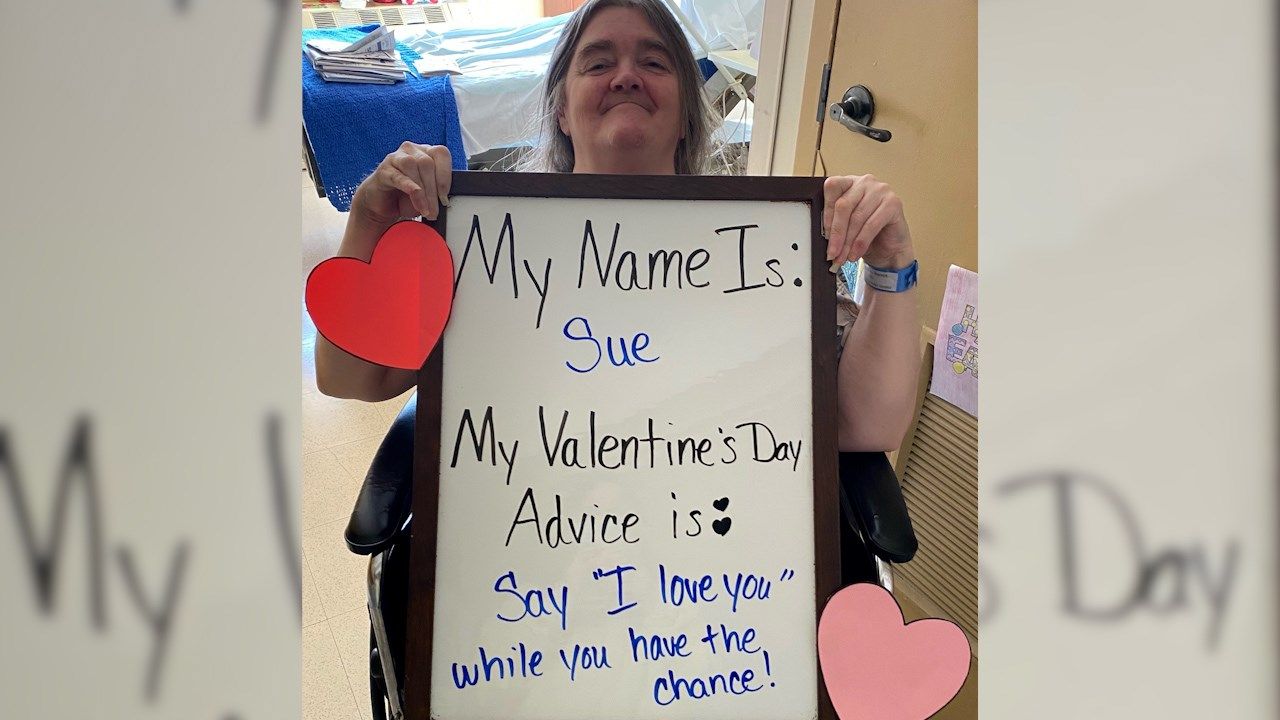 My Name Is:
Sue
My Valentine's Day
Advice is:
Say "I love you"
while you have the
chance!